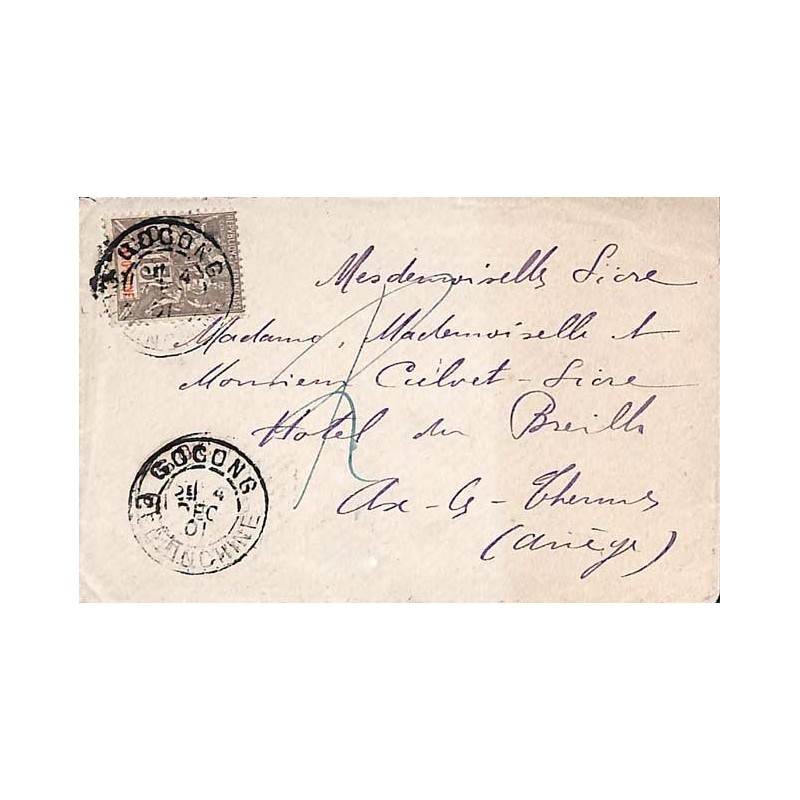 GOCONG
RÉPUBLIQUE
Mesdemoiselles Sicre
Madame, Mademoiselle et
Monsieur Calvet-Sicre
Hotel du Breilh
Ax-les-Thermes
(Ariège)
GOCONG
4
DEC
01
COCHINCHINE